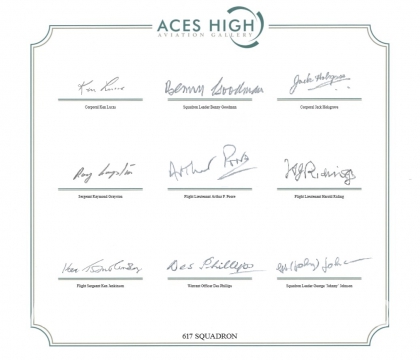 ACES HIGH
AVIATION GALLERY
Ken Lucas
Benny Goodman
Jack Holsgrove
Corporal Ken Lucas
Squadron Leader Benny Goodman
Corporal Jack Holsgrove
Ray Grayston
Arthur Poore
H J Riding
Sergeant Raymond Grayston
Flight Lieutenant Arthur P. Poore
Flight Lieutenant Harold Riding
Des Phillips
Flight Sergeant Ken
Warrant Officer Des Phillips
Squadron Leader George 'Johnny' Johnson
617 SQUADRON